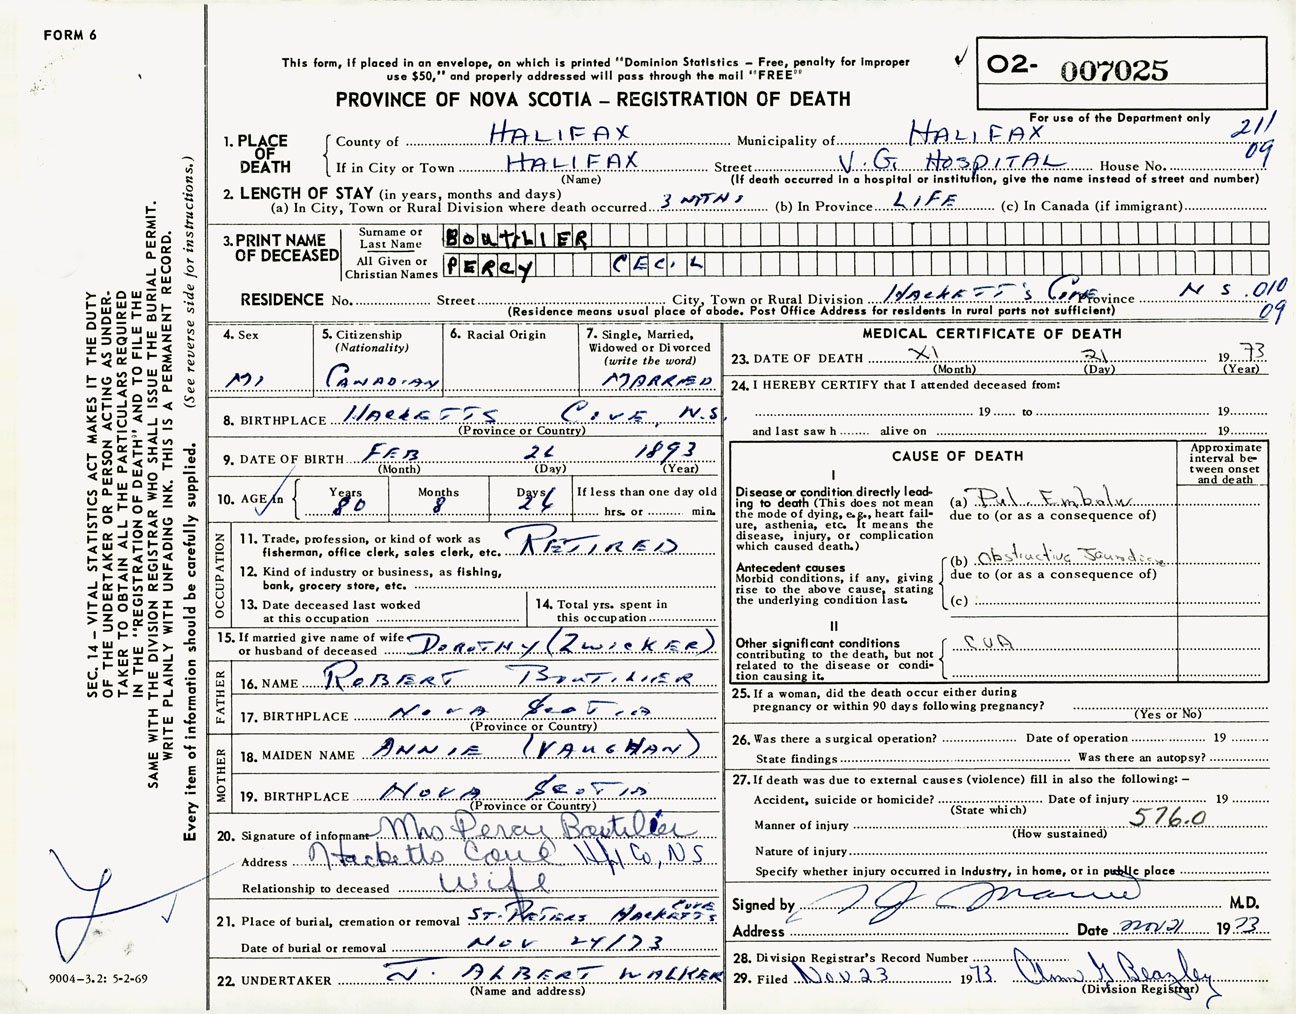 FORM 6
This form, if placed in an envelope, on which is printed "Dominion Statistics – Free, penalty for improper
use $50," and properly addressed will pass through the mail "FREE"
PROVINCE OF NOVA SCOTIA – REGISTRATION OF DEATH
02- 007025
For use of the Department only
211
09
1. PLACE OF DEATH
County of HALIFAX Municipality of HALIFAX
If in City or Town HALIFAX Street V.G. HOSPITAL House No.
(Name) (If death occurred in a hospital or institution, give the name instead of street and number)
2. LENGTH OF STAY (in years, months and days)
(a) In City, Town or Rural Division where death occurred 3 MTHS (b) In Province LIFE (c) In Canada (if immigrant)
3. PRINT NAME OF DECEASED
Surname or Last Name BOUTILIER
All Given or Christian Names PERCY CECIL
RESIDENCE No. Street City, Town or Rural Division HACKETT'S COVE Province N S .010
(Residence means usual place of abode. Post Office Address for residents in rural parts not sufficient)
09
4. Sex
5. Citizenship (Nationality)
6. Racial Origin
7. Single, Married, Widowed or Divorced (write the word)
CANADIAN MARRIED
8. BIRTHPLACE HACKETTS COVE, N.S.
(Province or Country)
9. DATE OF BIRTH FEB 26 1893
(Month) (Day) (Year)
10. AGE in Years Months Days If less than one day old
80 8 26 hrs. or min.
OCCUPATION
11. Trade, profession, or kind of work as fisherman, office clerk, sales clerk, etc. RETIRED
12. Kind of industry or business, as fishing, bank, grocery store, etc.
13. Date deceased last worked at this occupation
14. Total yrs. spent in this occupation
15. If married give name of wife or husband of deceased DOROTHY (ZWICKER)
FATHER
16. NAME ROBERT BOUTILIER
17. BIRTHPLACE NOVA SCOTIA
(Province or Country)
MOTHER
18. MAIDEN NAME ANNIE (VAUGHAN)
19. BIRTHPLACE NOVA SCOTIA
(Province or Country)
20. Signature of informant Mrs Percy Boutilier
Address Hacketts Cove Hfx Co, NS
Relationship to deceased Wife
21. Place of burial, cremation or removal ST. PETERS HACKETTS COVE
Date of burial or removal NOV 24/73
22. UNDERTAKER J. ALBERT WALKER
(Name and address)
MEDICAL CERTIFICATE OF DEATH
23. DATE OF DEATH XI 21 19 73
(Month) (Day) (Year)
24. I HEREBY CERTIFY that I attended deceased from:
19 to 19
and last saw h alive on 19
CAUSE OF DEATH
Approximate interval between onset and death
I
Disease or condition directly leading to death (This does not mean the mode of dying, e.g., heart failure, asthenia, etc. It means the disease, injury, or complication which caused death.)
(a) Pul. Embolus
due to (or as a consequence of)
(b) Obstructive Jaundice
due to (or as a consequence of)
Antecedent causes
Morbid conditions, if any, giving rise to the above cause, stating the underlying condition last.
(c)
II
Other significant conditions
contributing to the death, but not related to the disease or condition causing it.
CVA
25. If a woman, did the death occur either during pregnancy or within 90 days following pregnancy?
(Yes or No)
26. Was there a surgical operation? Date of operation 19
State findings Was there an autopsy?
27. If death was due to external causes (violence) fill in also the following: –
Accident, suicide or homicide? Date of injury 19
(State which)
Manner of injury 576.0
(How sustained)
Nature of injury
Specify whether injury occurred in Industry, in home, or in public place
Signed by M.D.
Address Date Nov 21 1973
28. Division Registrar's Record Number
29. Filed Nov 23 1973 Beazley
(Division Registrar)
SEC. 14 – VITAL STATISTICS ACT MAKES IT THE DUTY
OF THE UNDERTAKER OR PERSON ACTING AS UNDER-
TAKER TO OBTAIN ALL THE PARTICULARS REQUIRED
IN THE "REGISTRATION OF DEATH" AND TO FILE THE
SAME WITH THE DIVISION REGISTRAR WHO SHALL ISSUE THE BURIAL PERMIT.
WRITE PLAINLY WITH UNFADING INK. THIS IS A PERMANENT RECORD.
Every item of information should be carefully supplied. (See reverse side for instructions.)
9004-3.2: 5-2-69